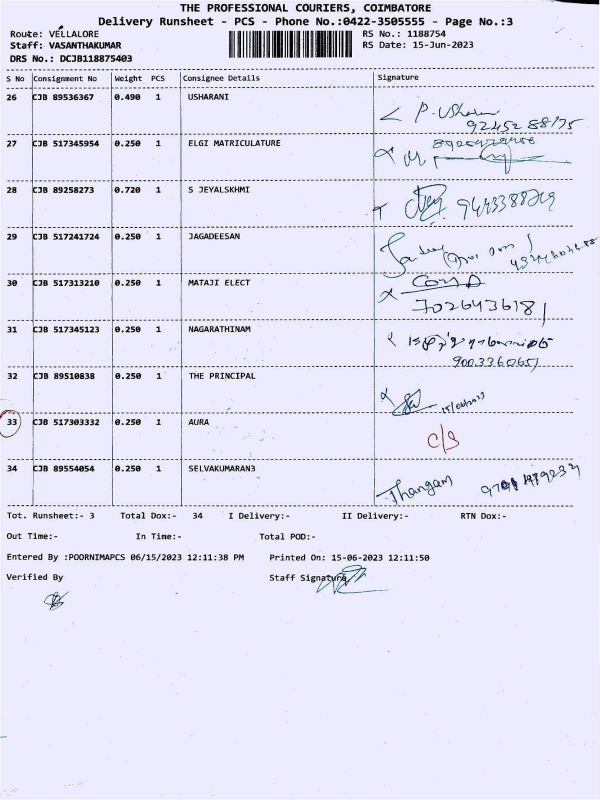 THE PROFESSIONAL COURIERS, COIMBATORE
Delivery Runsheet - PCS - Phone No.:0422-3505555 - Page No.:3
Route: VELLALORE RS No.: 1188754
Staff: VASANTHAKUMAR RS Date: 15-Jun-2023
DRS No.: DCJB118875403
S No Consignment No Weight PCS Consignee Details Signature
26 CJB 89536367 0.490 1 USHARANI
P. Usha
9245288175
27 CJB 517345954 0.250 1 ELGI MATRICULATURE
28 CJB 89258273 0.720 1 S JEYALSKHMI
29 CJB 517241724 0.250 1 JAGADEESAN
30 CJB 517313210 0.250 1 MATAJI ELECT
7026436181
31 CJB 517345123 0.250 1 NAGARATHINAM
9003360651
32 CJB 89510838 0.250 1 THE PRINCIPAL
15/06/2023
33 CJB 517303332 0.250 1 AURA
C/S
34 CJB 89554054 0.250 1 SELVAKUMARAN3
Thangam
Tot. Runsheet:- 3 Total Dox:- 34 I Delivery:- II Delivery:- RTN Dox:-
Out Time:- In Time:- Total POD:-
Entered By :POORNIMAPCS 06/15/2023 12:11:38 PM Printed On: 15-06-2023 12:11:50
Verified By Staff Signature